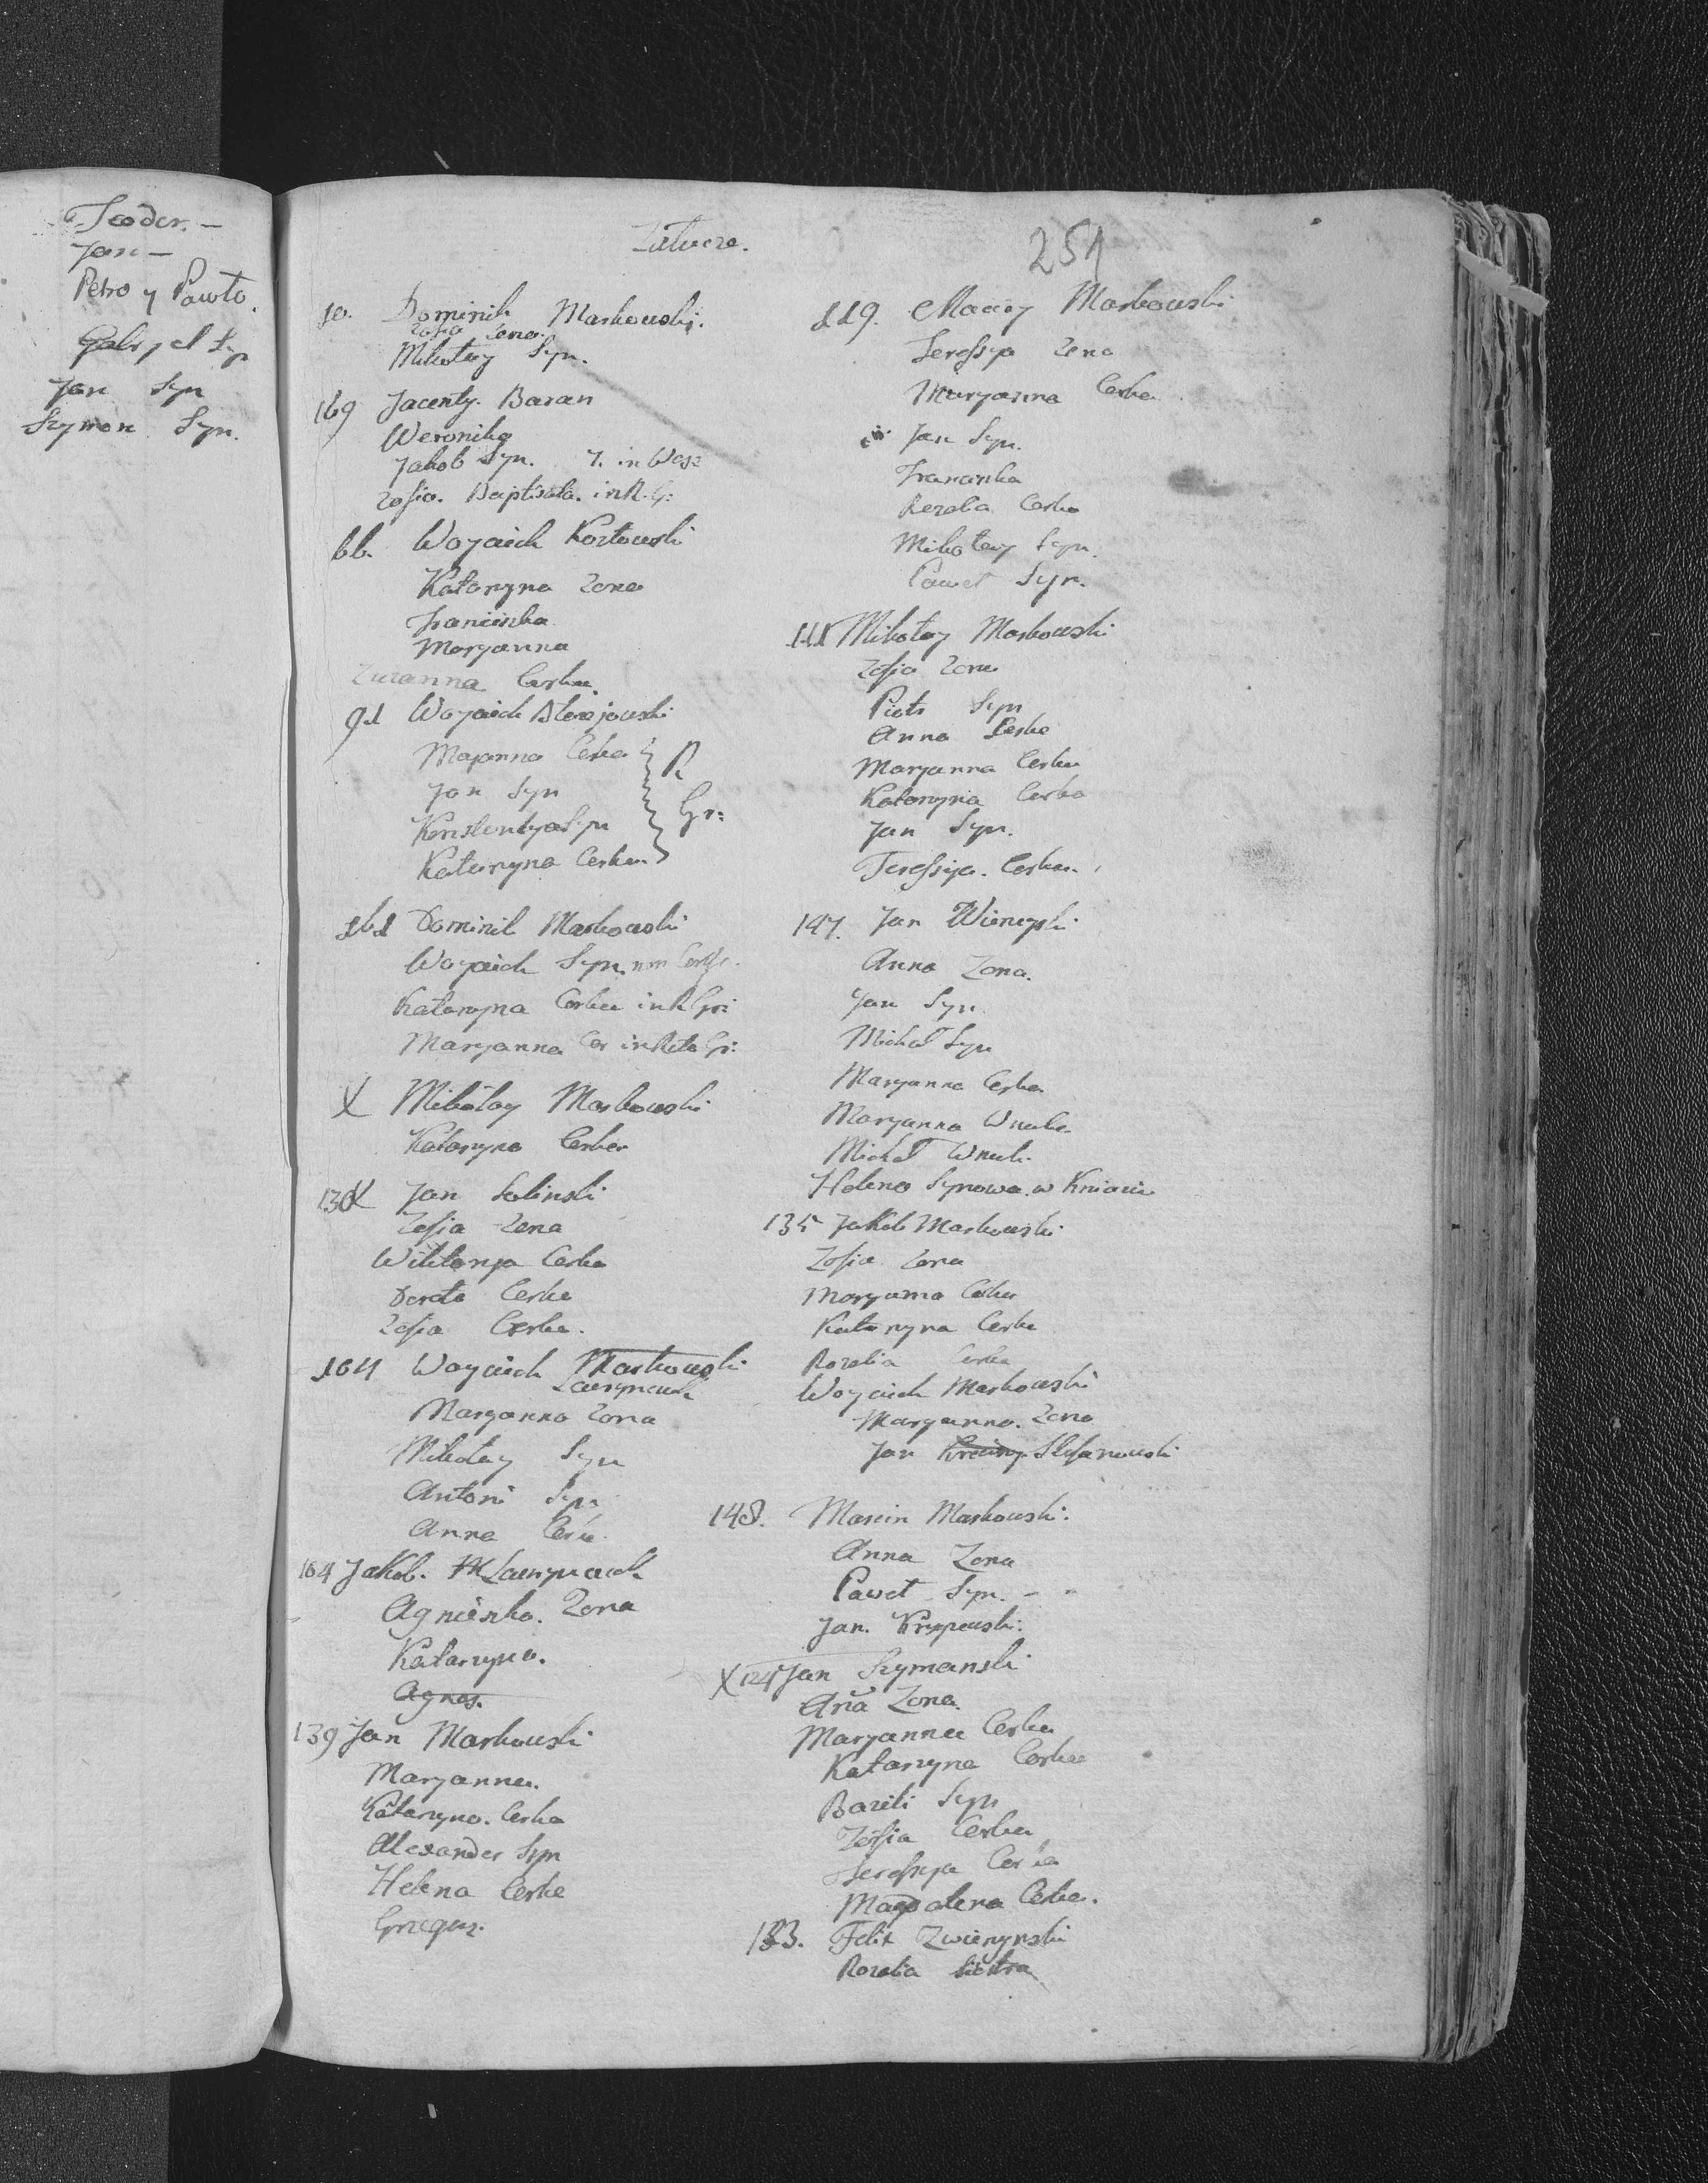 Teodor. —
Jan —
Petro y Pawło.
Gabryel Syn
Jan Syn
Szymon Syn.
Zalucze.
251
10. Dominik Markowski.
Zofia Zona.
Mikołay Syn.
169 Jacenty. Baran
Weronika
Jakob Syn.
Zofia. Baptisata. in R. G:
66. Woyciech Kozłowski
Katarzyna Zona
Franciszka
Maryanna
Zuzanna Corka.
91 Woyciech Blazejowski
Maryanna Corka
R
Jan Syn
Gr:
Konstanty Syn
Katarzyna Corka
161 Dominik Markowski
Woyciech Syn. non
Katarzyna Corka in R Gr:
Maryanna Cor in Gr:
X Mikołay Markowski
Katarzyna Corka
130 X Jan Solinski
Zofia Zona
Wiktorya Corka
Dorota Corka
Zofia Corka.
164 Woyciech Markowski
Maryanna Zona
Mikołay Syn
Antoni Syn
Anna Corka.
164 Jakob.
Agnieszka. Zona
Katarzyna.
Agnes.
139 Jan Markowski
Maryanna.
Katarzyna. Corka
Alexander Syn
Helena Corka
Grzegorz.
119. Maciey Markowski
Teressya Zona
Maryanna Corka
Jan Syn.
Franciszka
Rozalia Corka
Mikołay Syn.
Paweł Syn.
141 Mikołay Markowski
Zofia Zona
Piotr Syn
Anna Corka
Maryanna Corka
Katarzyna Corka
Jan Syn.
Teressya. Corka.
147. Jan
Anna Zona.
Jan Syn.
Michał Syn
Maryanna Corka
Maryanna Wnuka
Michał Wnuk.
Helena Synowa. w
135 Jakob Markowski
Zofia Zona
Maryanna Corka
Katarzyna Corka
Rozalia Corka
Woyciech Markowski
Maryanna. Zona
Jan Stefanowski
148. Marcin Markowski.
Anna Zona
Paweł Syn. -
Jan.
X 124 Jan Szymanski
Ana Zona.
Maryanna Corka
Katarzyna Corka
Bazili Syn
Zofia Corka
Teressya Corka
Magdalena Corka.
133. Felix Zwierzynski
Rozalia Siostra